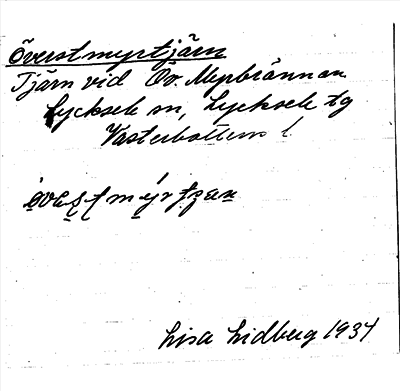 Överstmyrtjärn
Tjärn vid Öv. Myrbrännan
Lycksele sn, Lycksele tg
Västerbottens l
Lisa Lidberg 1934